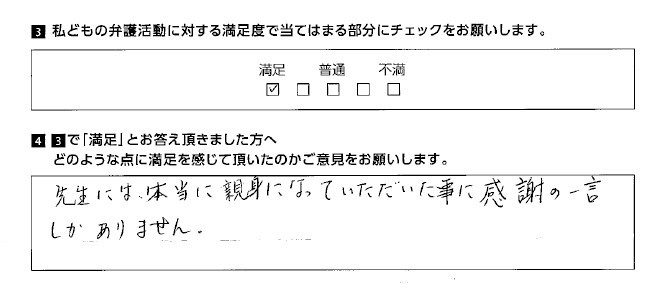 3 私どもの弁護活動に対する満足度で当てはまる部分にチェックをお願いします。
満足 普通 不満
☑ □ □ □ □
4 3で「満足」とお答え頂きました方へ
どのような点に満足を感じて頂いたのかご意見をお願いします。
先生には、本当に親身になっていただいた事に感謝の一言
しかありません。